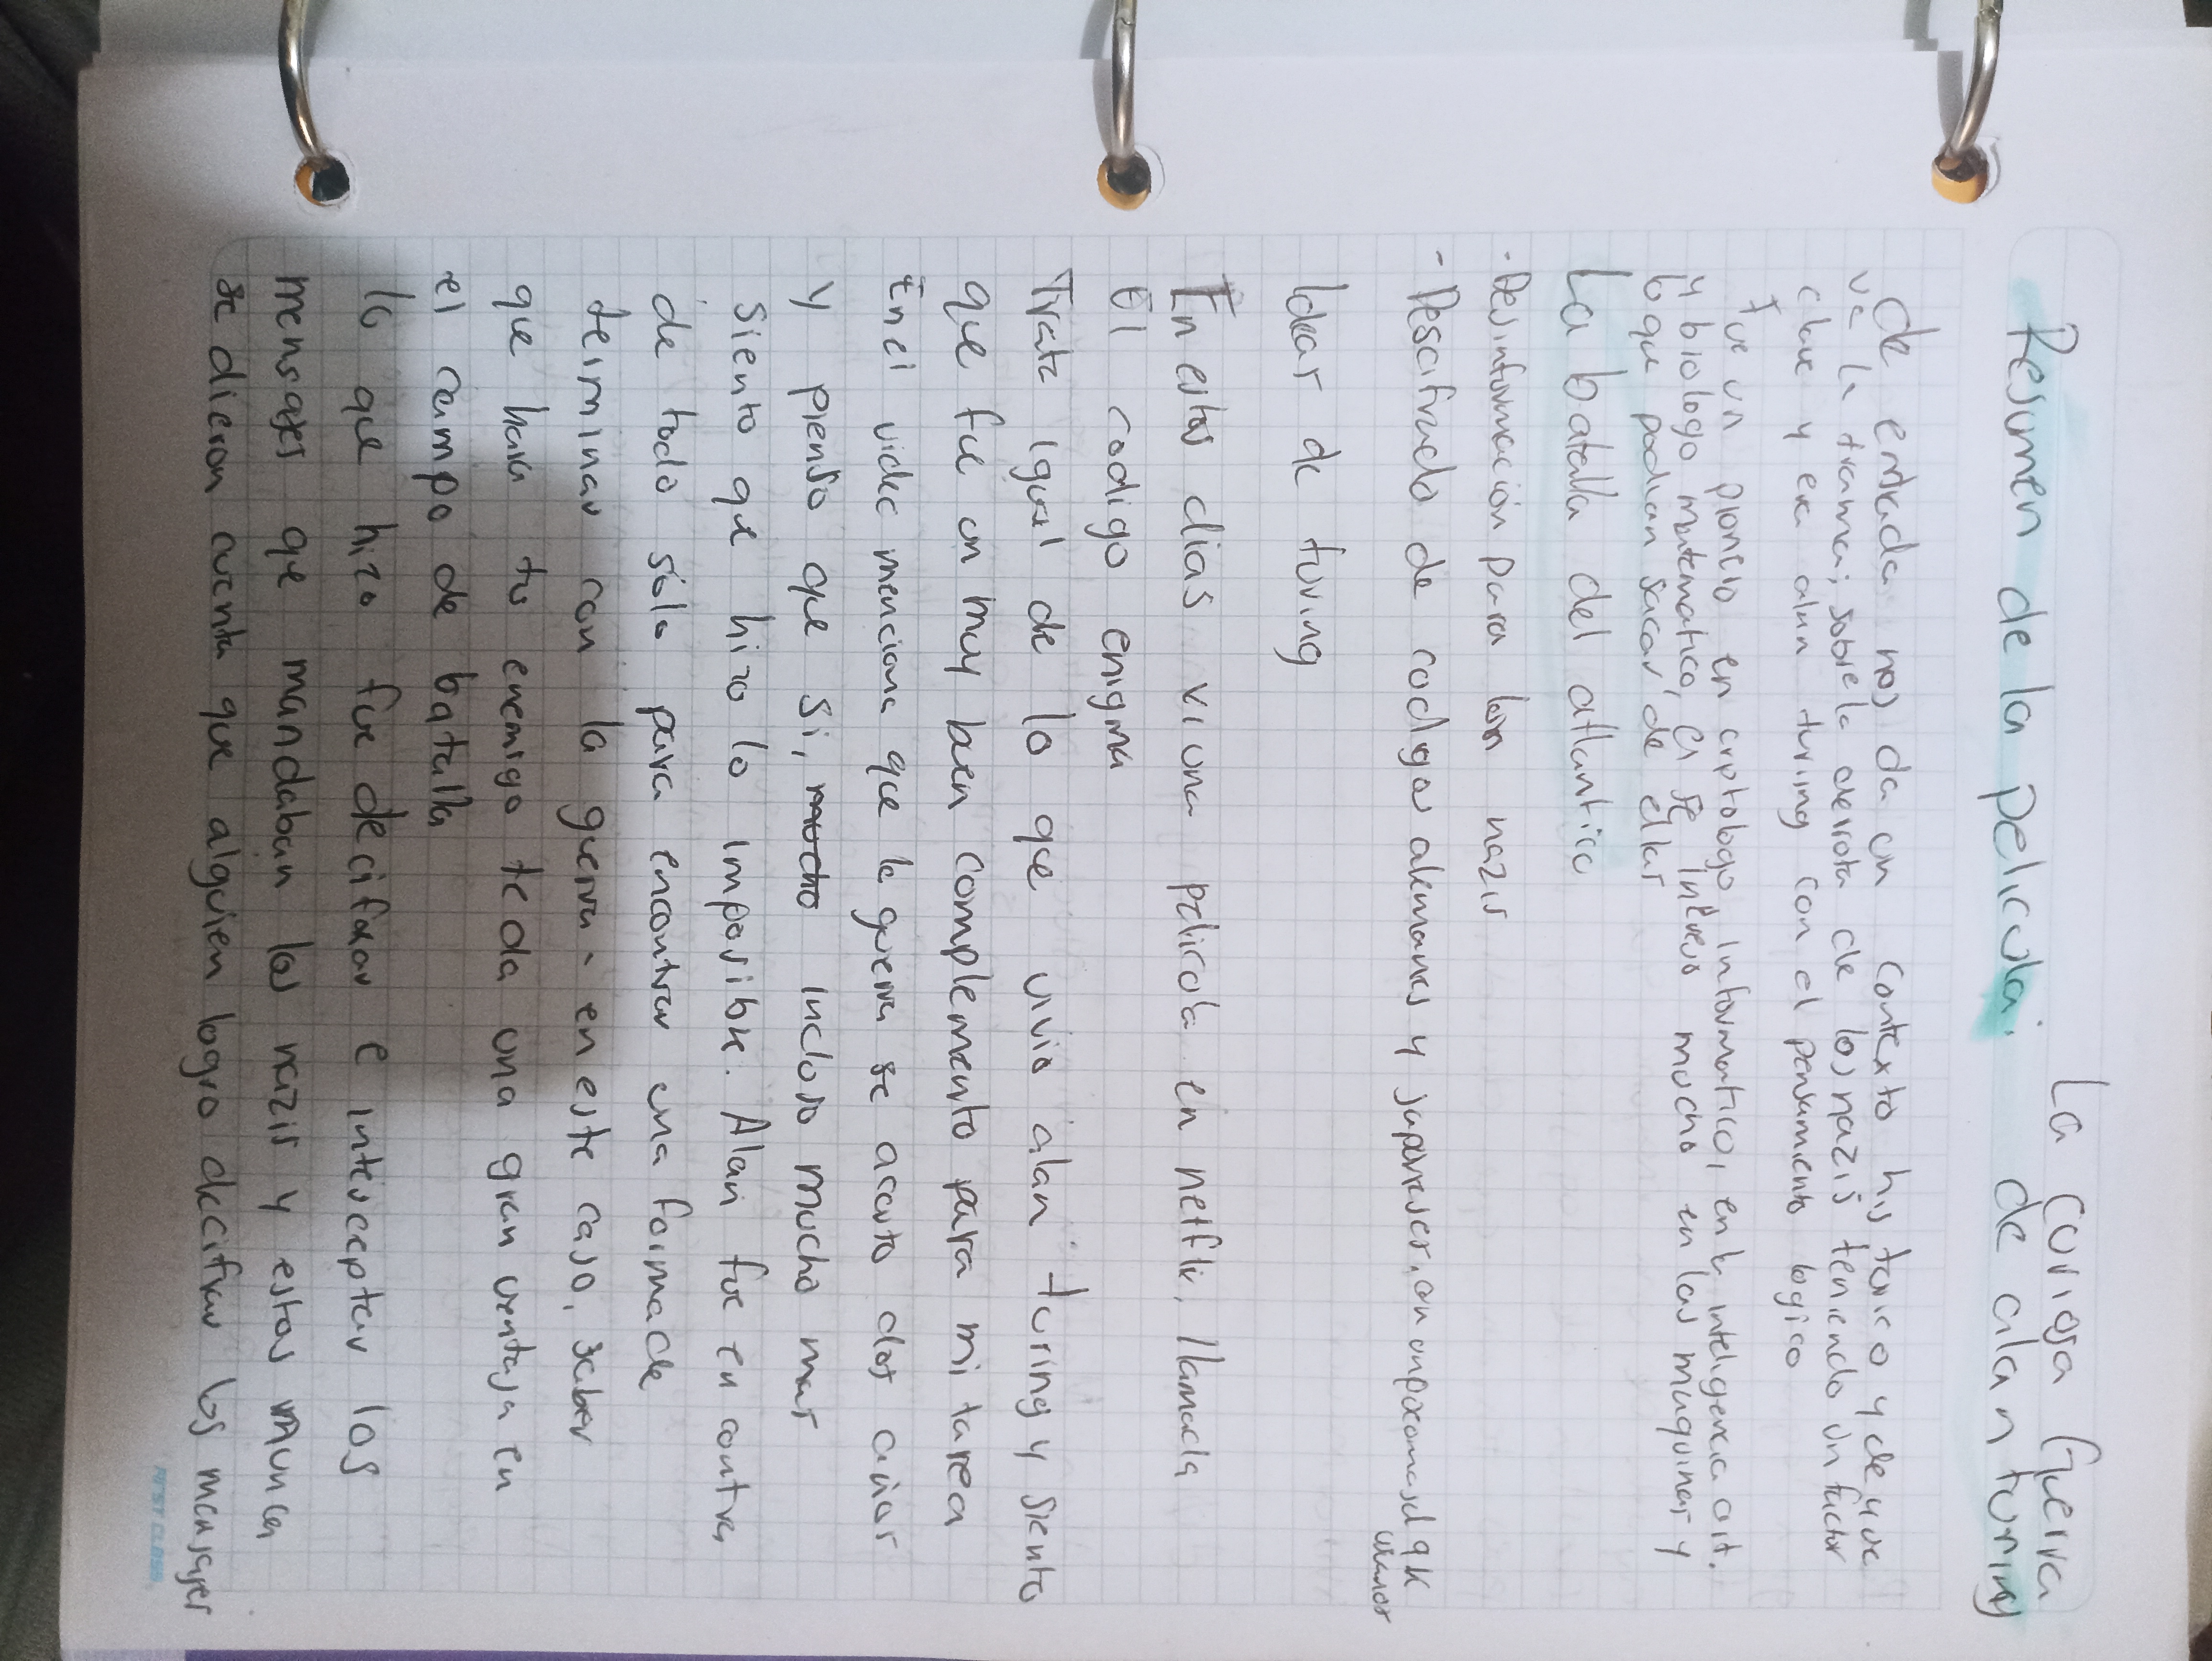 La curiosa Guerra
Resumen de la pelicula: de alan turing
de entrada nos da un contexto historico y de que
va la trama; sobre la derrota de los nazis teniendo un factor
clave y era alan turing con el pensamiento logico
fue un pionero en criptologo informatico, en la inteligencia art.
y biologo matematico, el se intereso mucho en las maquinas y
lo que podian sacar de ellas
La batalla del atlantico
- Desinformación para los nazis
- Descifrado de codigos alemanes y de
ideas de turing
En estos dias vi una pelicula en netflix, llamada
El codigo enigma
Trata igual de lo que vivio alan turing y siento
que fue un muy buen complemento para mi tarea
En el video menciona que la guerra se acorto dos años
y pienso que si, mucho incluso mucho mas
siento que hizo lo imposible. Alan fue en contra
de todo solo para encontrar una forma de
terminar con la guerra - en este caso, saber
que hara tu enemigo te da una gran ventaja en
el campo de batalla
lo que hizo fue decifrar e interceptar los
mensajes que mandaban los nazis y estos nunca
se dieron cuenta que alguien logro decifrar los mensajes
FIRST CLASS